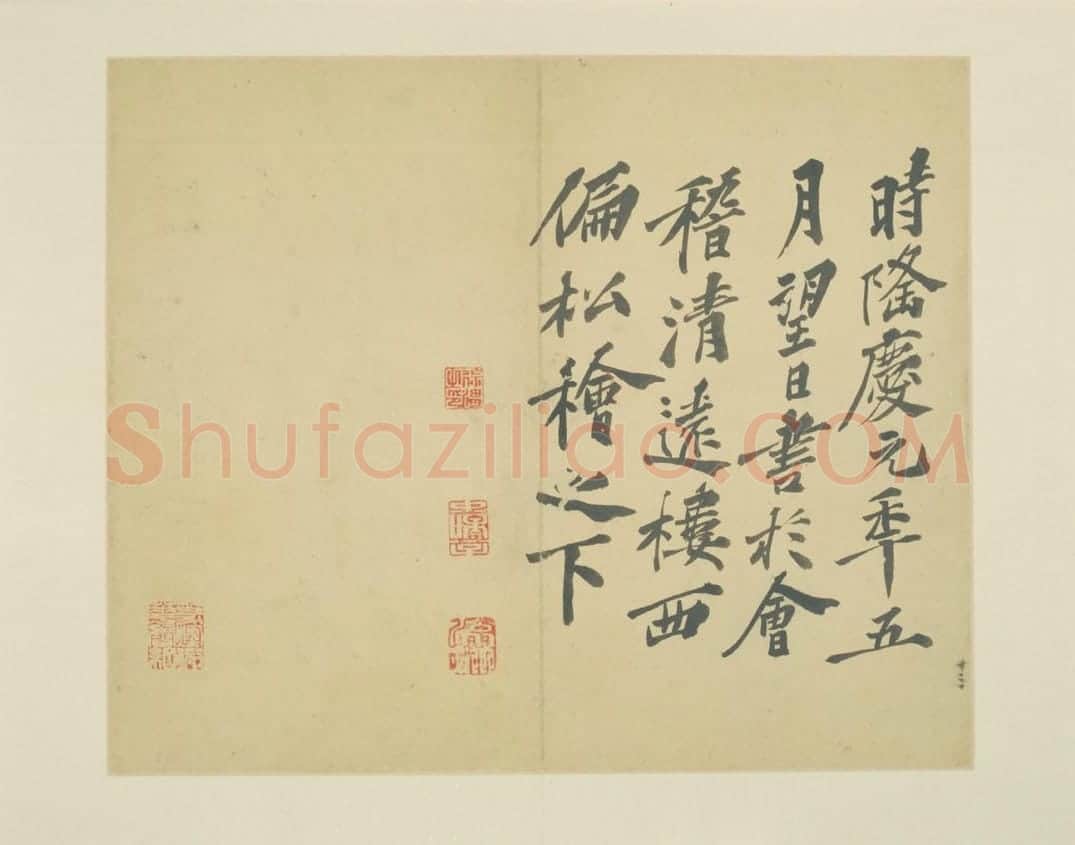 時隆慶元年五
月望日書於會
稽清遠樓西
偏松檜之下
Shufaziliao.COM